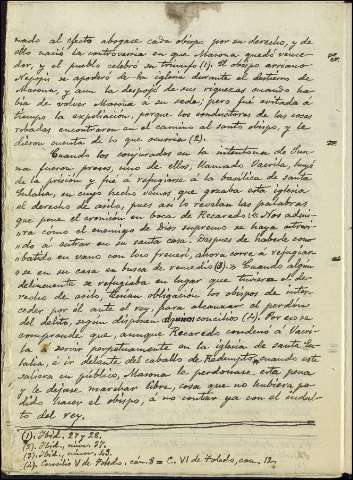 nado al efecto abogase cada obispo por su derecho, y de
ello nació la controversia en que Masona quedó vence-
dor, y el pueblo celebró su triunfo (1). El obispo arriano
Nepopis se apoderó de la iglesia durante el destierro de
Masona, y aun la despojó de sus riquezas cuando ha-
bía de volver Masona á su sede; pero fué evitada á
tiempo la expoliación, porque los conductores de las cosas
robadas encontraron en el camino al santo obispo, y le
dieron cuenta de lo que ocurría (2).
Cuando los conjurados en la intentona de Sun-
na fueron presos, uno de ellos, llamado Vacrila, huyó
de la prisión y fué a refugiarse á la basílica de santa
Eulalia, en cuyo hecho vemos que gozaba esta iglesia
el derecho de asilo, pues así lo revelan las palabras
que pone el cronicón en boca de Recaredo: « Nos admi-
ra cómo el enemigo de Dios supremo se haya atrevi-
do a entrar en su santa casa. Después de haberle com-
batido en vano con loco frenesí, ahora corre a refugiar-
se en su casa en busca de remedio (3). » Cuando algún
delincuente se refugiaba en lugar que tuviese el de-
recho de asilo, tenían obligación los obispos de inter-
ceder por él ante el rey, para alcanzar el perdón
del delito, según disponen algunos concilios (4). Por eso se
comprende que, aunque Recaredo condenó á Vacri-
la á servir perpetuamente en la iglesia de santa Eu-
lalia, é ir delante del caballo de Redempto, cuando este
saliera en público, Masona le perdonase esta pena
y le dejase marchar libre, cosa que no hubiera po-
dido hacer el obispo, á no contar ya con el indul-
to del rey.
(1). Ibid. 27 y 28.
(2). Ibid., núm. 37.
(3). Ibid., núm. 43.
(4). Concilio V de Toledo. cán. 8 = C. VI de Toledo, can. 12.